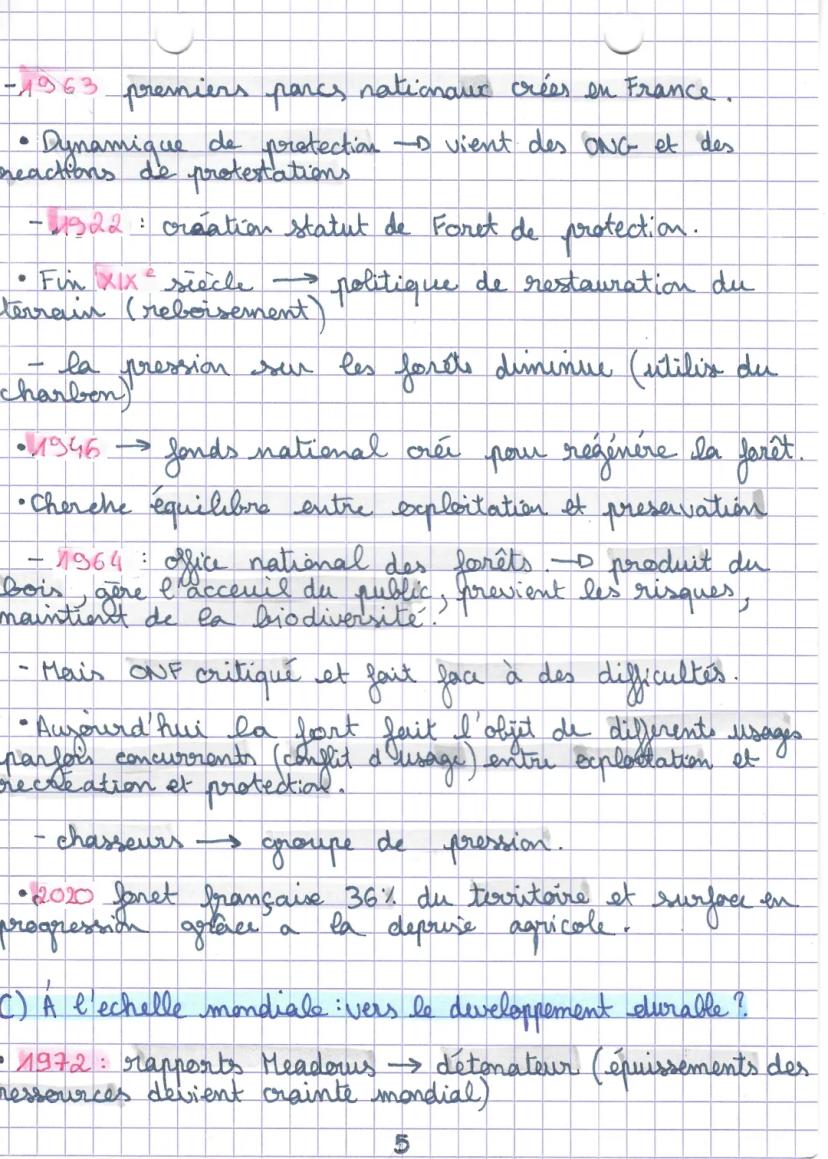 - 1963 premiers parcs nationaux crées en France.
• Dynamique de protection → vient des ONG et des
reactions de protestations
- 1922 : création statut de Foret de protection.
• Fin XIXe siècle → politique de restauration du
terrain (reboisement)
- la pression sur les forêts diminue (utilis du
charbon)
• 1946 → fonds national créé pour régénére la forêt.
• Cherche équilibre entre exploitation et preservation
- 1964 : office national des forêts. → produit du
bois, gère l'acceuil du public, previent les risques,
maintient de la biodiversité.
- Mais ONF critiqué et fait face à des difficultés.
• Aujourd'hui la fort fait l'objet de differents usages
parfois concurrents (conflit d'usage) entre exploitation et
recréation et protection.
- chasseurs → groupe de pression.
• 2020 foret française 36% du territoire et surface en
progression grâce a la deprise agricole.
C) À l'echelle mondiale : vers le developpement durable ?
• 1972 : rapports Meadows → détonateur (épuissements des
ressources devient crainte mondial)
5